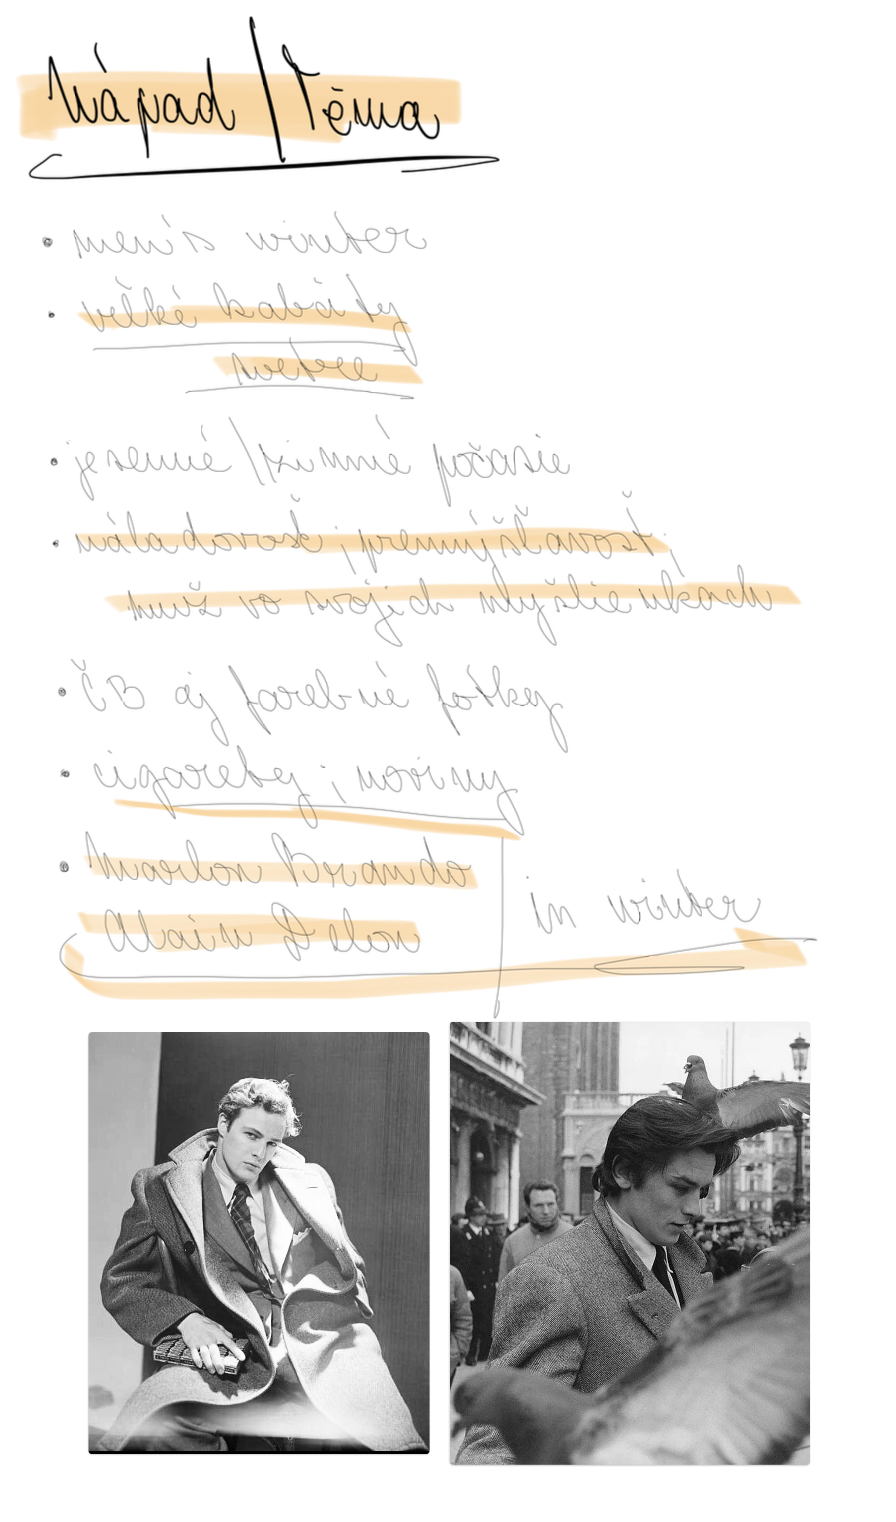 Nápad / Téma
• men's winter
• veľké kabáty
svetre
• jesenné / zimné počasie
• náladovosť ; premýšľavosť ;
muž vo svojich myšlienkach
• ČB aj farebné fotky
• cigarety ; noviny
• Marlon Brando
Alain Delon
in winter